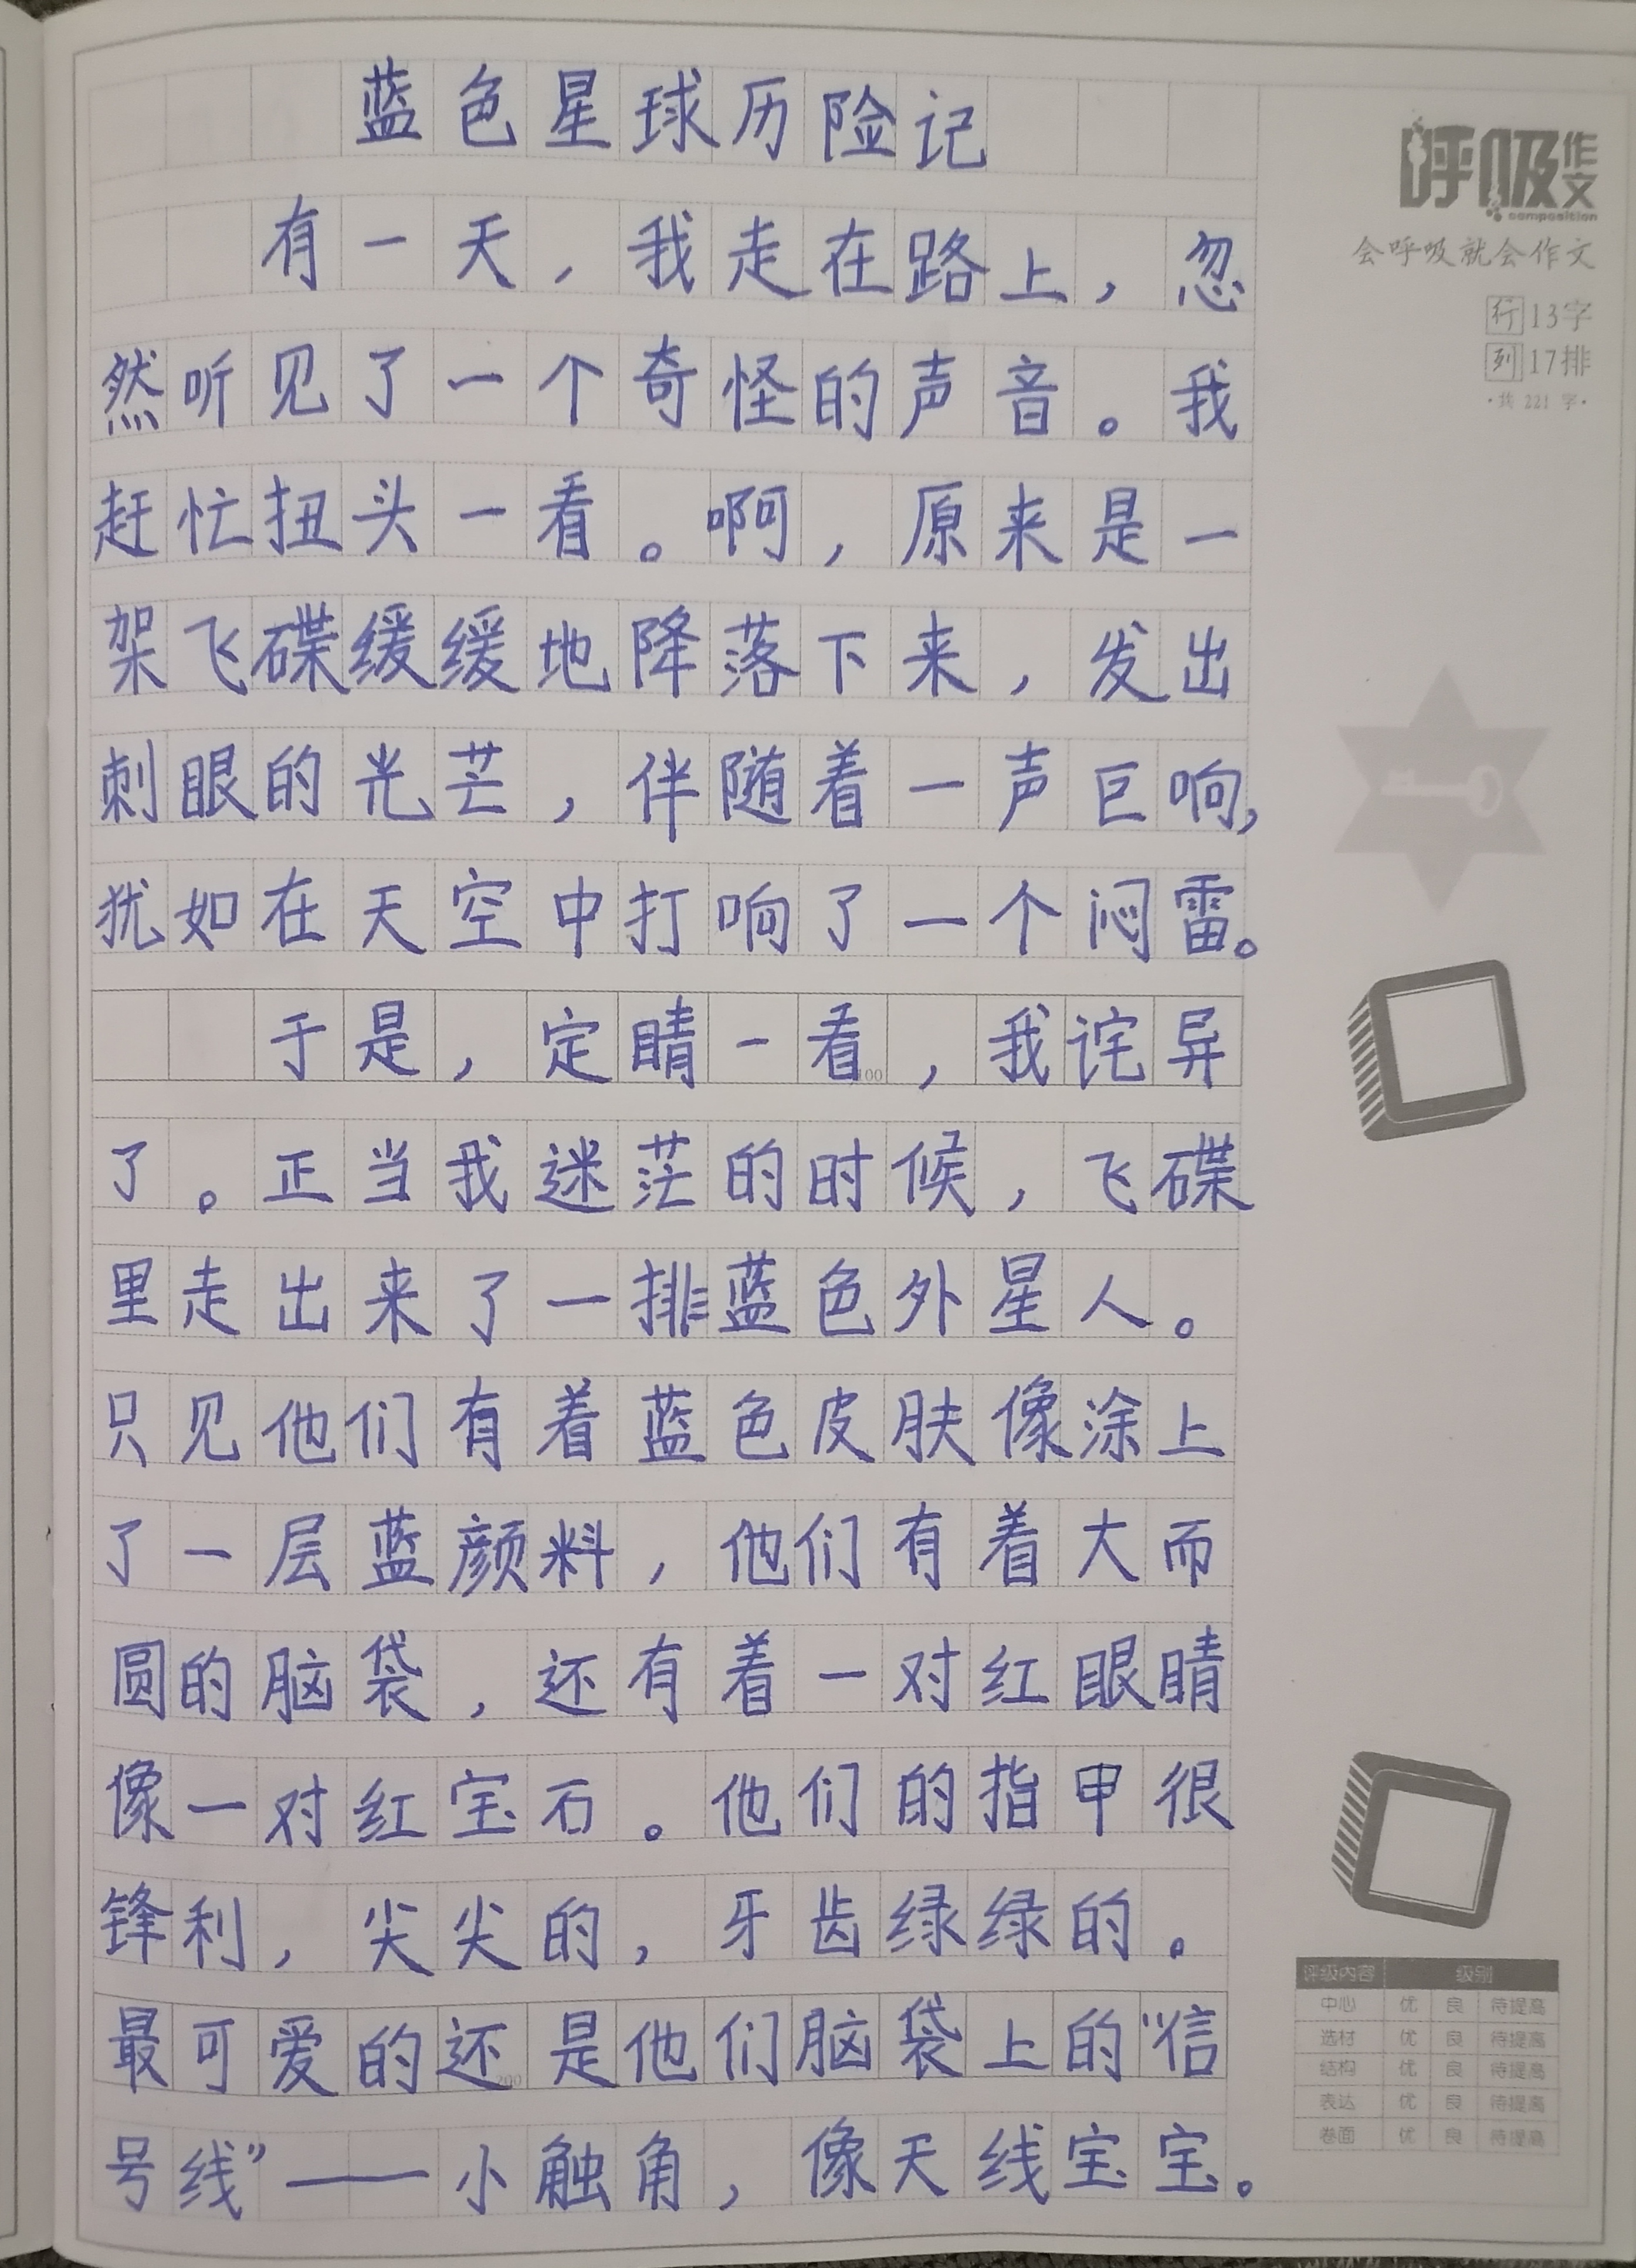 蓝色星球历险记
有一天，我走在路上，忽
然听见了一个奇怪的声音。我
赶忙扭头一看。啊，原来是一
架飞碟缓缓地降落下来，发出
刺眼的光芒，伴随着一声巨响，
犹如在天空中打响了一个闷雷。
于是，定睛一看，我诧异
了。正当我迷茫的时候，飞碟
里走出来了一排蓝色外星人。
只见他们有着蓝色皮肤像涂上
了一层蓝颜料，他们有着大而
圆的脑袋，还有着一对红眼睛
像一对红宝石。他们的指甲很
锋利，尖尖的，牙齿绿绿的。
最可爱的还是他们脑袋上的“信
号线”——小触角，像天线宝宝。
100
200
呼吸作文
composition
会呼吸就会作文
行 13字
列 17排
·共 221 字·
评级内容 级别
中心 优 良 待提高
选材 优 良 待提高
结构 优 良 待提高
表达 优 良 待提高
卷面 优 良 待提高